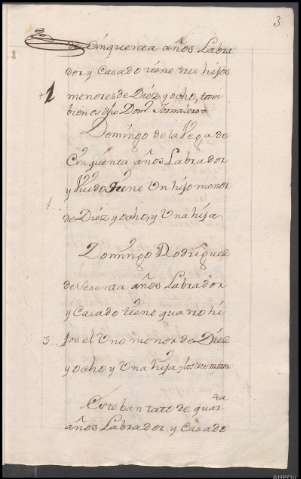 3
de Cinquenta años Labra
dor y Casado tiene tres hijos
+1 menores de Diez y ocho, tam
bien
Domingo de la Vega de
Cinquenta años Labrador
y Viudo tiene Un hijo menor
1. de Diez y ocho, y Una hija
Domingo Rodriguez
de sesenta años Labrador
y Casado tiene quatro hi
3.. jos el Uno menor de Diez
y ocho y Una hija
Esteban tato de quarta
años Labrador y Casado